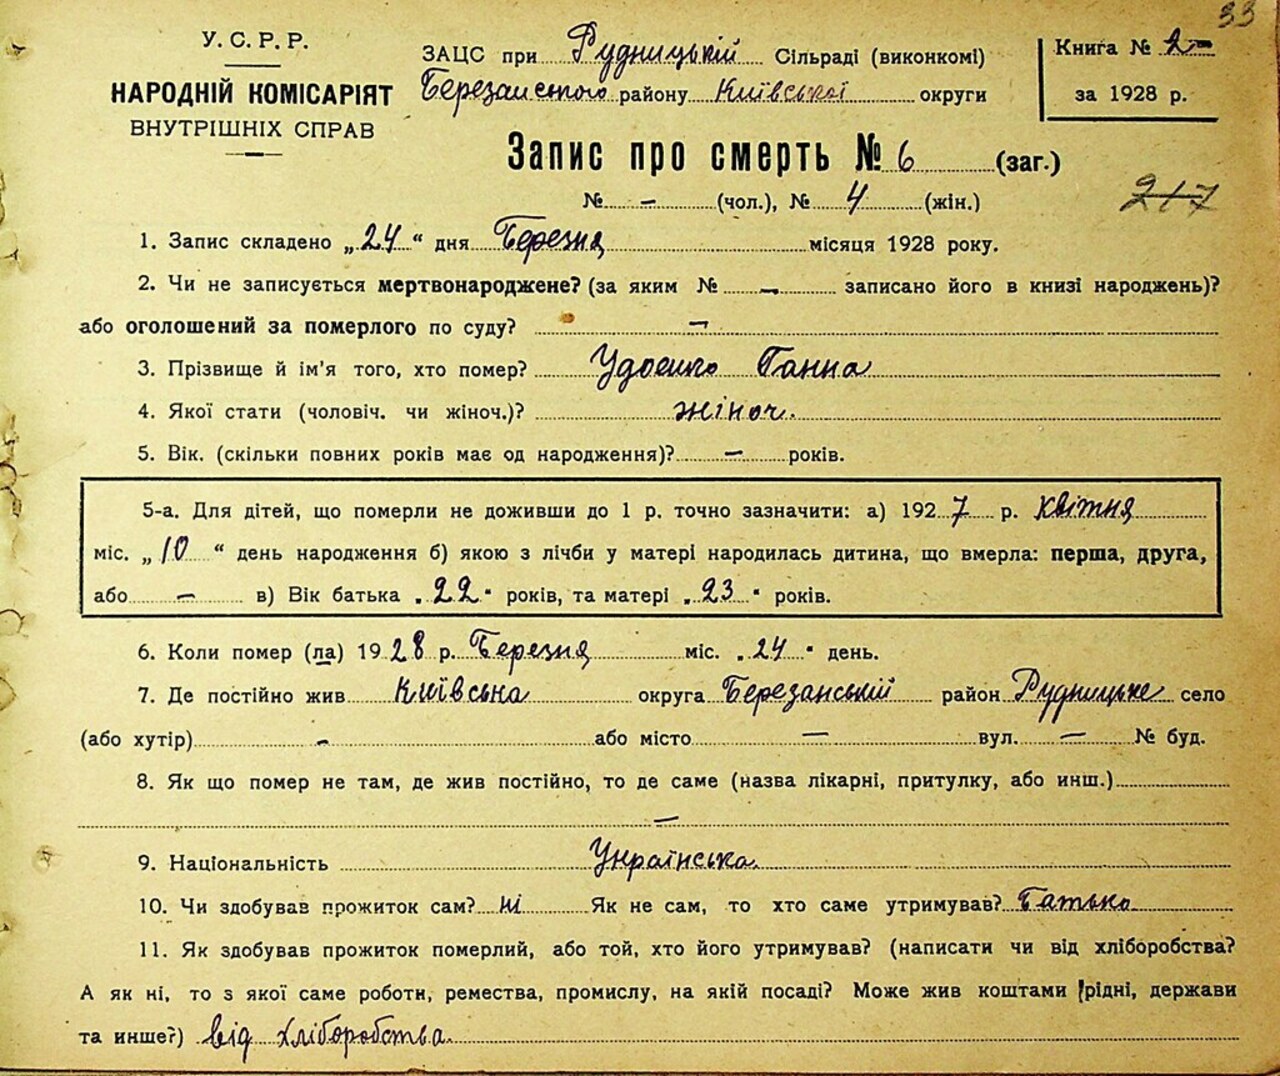 33
У.С.Р.Р.
НАРОДНІЙ КОМІСАРІЯТ
ВНУТРІШНІХ СПРАВ
ЗАЦС при Рудницькій Сільраді (виконкомі)
Березанського району Київської округи
Книга № 2
за 1928 р.
Запис про смерть № 6 (заг.)
№ – (чол.), № 4 (жін.)
217
1. Запис складено „24“ дня Березня місяця 1928 року.
2. Чи не записується мертвонароджене? (за яким № – записано його в книзі народжень)?
або оголошений за померлого по суду? –
3. Прізвище й ім'я того, хто помер? Ганна
4. Якої стати (чоловіч. чи жіноч.)? жіноч.
5. Вік. (скільки повних років має од народження)? – років.
5-а. Для дітей, що померли не доживши до 1 р. точно зазначити: а) 1927 р. квітня
міс. „10“ день народження б) якою з лічби у матері народилась дитина, що вмерла: перша, друга,
або – в) Вік батька „22“ років, та матері „23“ років.
6. Коли помер (ла) 1928 р. Березня міс. „24“ день.
7. Де постійно жив Київська округа Березанській район Рудницьке село
(або хутір) – або місто – вул. – № буд.
8. Як що помер не там, де жив постійно, то де саме (назва лікарні, притулку, або инш.)
–
9. Національність Українська
10. Чи здобував прожиток сам? ні Як не сам, то хто саме утримував? Батько
11. Як здобував прожиток померлий, або той, хто його утримував? (написати чи від хліборобства?
А як ні, то з якої саме роботи, ремества, промислу, на якій посаді? Може жив коштами рідні, держави
та инше?) від хліборобства.